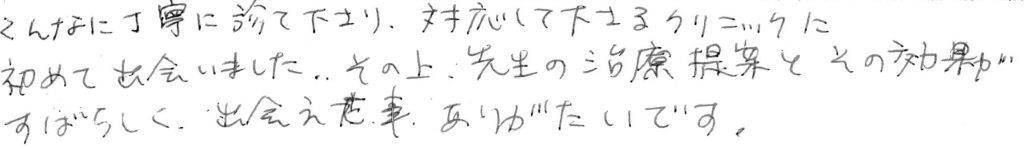 こんなに丁寧に診て下さり、対応して下さるクリニックに
初めて出会いました。その上、先生の治療提案とその効果が
すばらしく、出会えた事、ありがたいです。